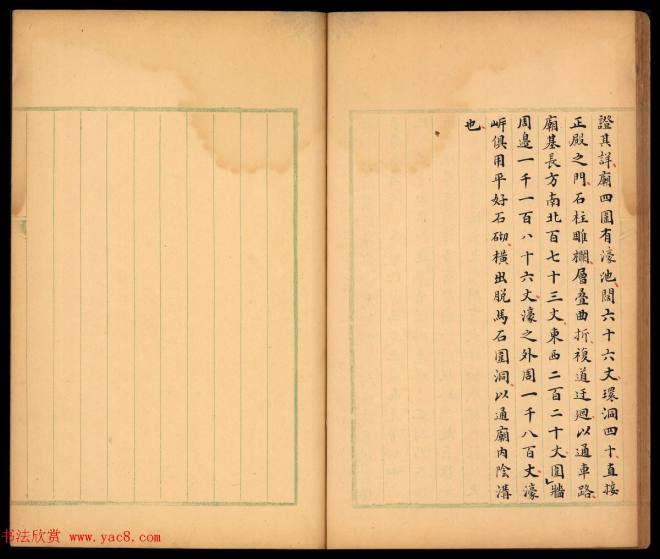 證其詳廟四圍有濠池闊六十六丈環洞四十直接
正殿之門石柱雕欄層疊曲折複道迂迴以通車路
廟基長方南北百七十三丈東西二百二十丈圍牆
周邉一千一百八十六丈濠之外周一千八百丈濠
㟁俱用平好石砌横出脱馬石圍洞以通廟内陰溝
也
书法欣赏 www.yac8.com